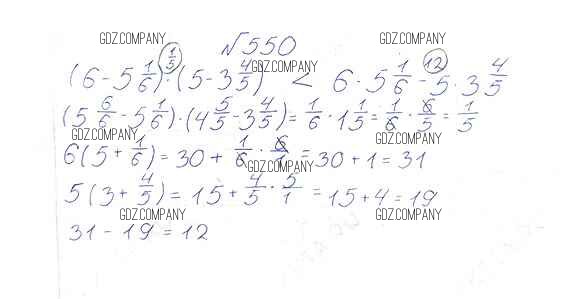 GDZ.COMPANY №550 GDZ.COMPANY
(6 - 5 1/6) · (5 - 3 4/5) (1/5) < 6 · 5 1/6 - 5 · 3 4/5 (12)
GDZ.COMPANY
(5 6/6 - 5 1/6) · (4 5/5 - 3 4/5) = 1/6 · 1 1/5 = 1/6 · 6/5 = 1/5
GDZ.COMPANY GDZ.COMPANY
6(5 + 1/6) = 30 + 1/6 · 6/1 = 30 + 1 = 31
GDZ.COMPANY
5(3 + 4/5) = 15 + 4/5 · 5/1 = 15 + 4 = 19
GDZ.COMPANY GDZ.COMPANY
31 - 19 = 12